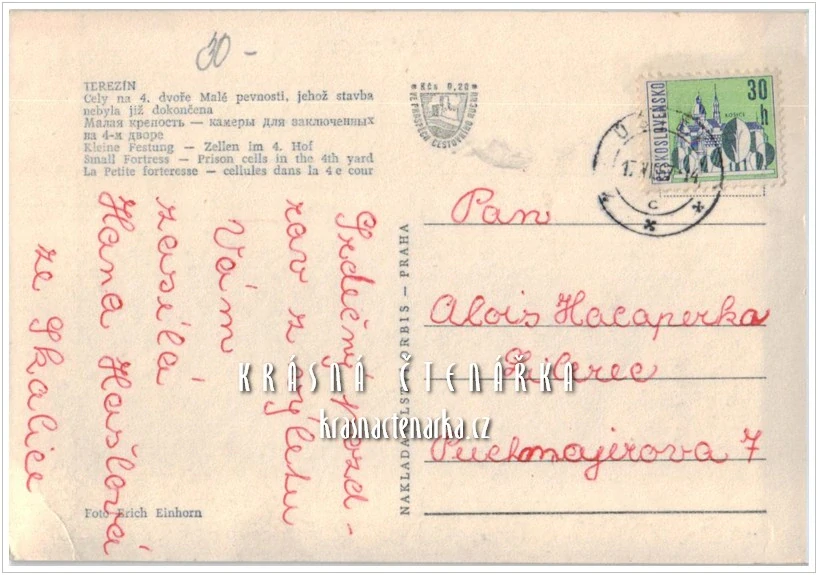 30-
TEREZÍN
Cely na 4. dvoře Malé pevnosti, jehož stavba
nebyla již dokončena
Малая крепость — камеры для заключенных
на 4-м дворе
Kleine Festung — Zellen im 4. Hof
Small Fortress — Prison cells in the 4th yard
La Petite forteresse — cellules dans la 4e cour
Kčs 0,20
VE PROSPĚCH CESTOVNÍHO RUCHU
ČESKOSLOVENSKO
30 h
KOŠICE
C
Srdečný pozd-
rav z výletu
Vám
zasílá
Hana Hašlová
ze Skalice
Pan
Alois Hacaperka
Liberec
Puchmajerova 7
NAKLADATELSTVÍ ORBIS — PRAHA
Foto Erich Einhorn
KRÁSNÁ ČTENÁŘKA
krasnactenarka.cz